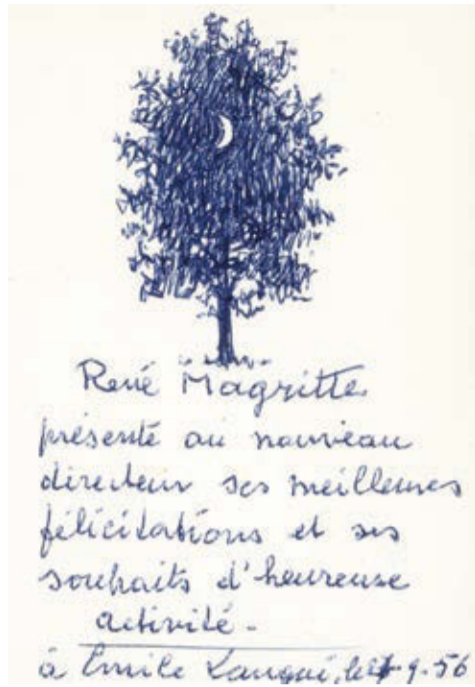 René Magritte
présente au nouveau
directeur ses meilleures
félicitations et ses
souhaits d'heureuse
activité -
à Emile Langui, le -9-56